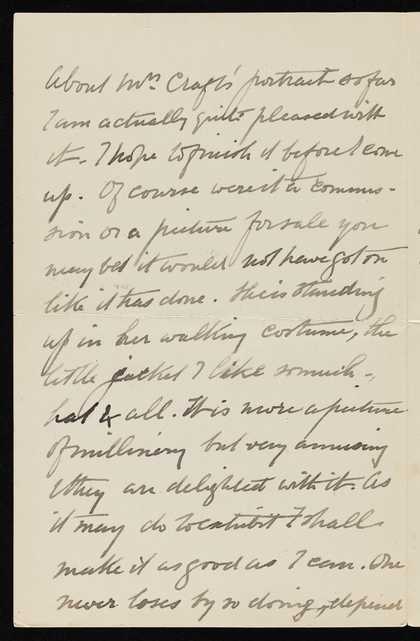 About Mrs Crafts' portrait so far
I am actually quite pleased with
it - I hope to finish it before I come
up. Of course were it a commis-
sion or a picture for sale you
may bet it would not have got on
like it has done. She is standing
up in her walking costume, the
little jacket I like so much -,
hat & all. It is more a picture
of millinery but very amusing
& they are delighted with it. As
it may do to exhibit I shall
make it as good as I can. One
never loses by so doing, depend